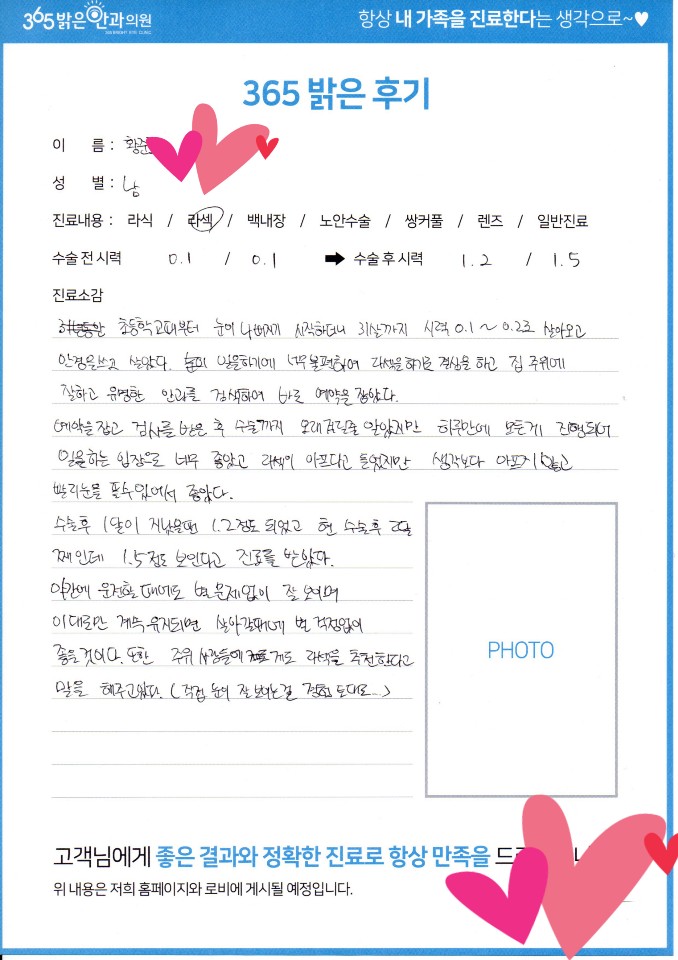 365 밝은안과의원
365 BRIGHT EYE CLINIC
항상 내 가족을 진료한다는 생각으로~♥
365 밝은 후기
이 름 : 황준
성 별 : 남
진료내용 : 라식 / 라섹 / 백내장 / 노안수술 / 쌍커풀 / 렌즈 / 일반진료
수술 전 시력 0.1 / 0.1 ➡ 수술 후 시력 1.2 / 1.5
진료소감
초등학교때부터 눈이 나빠지기 시작하더니 31살까지 시력 0.1 ~ 0.2로 살아오고
안경을쓰고 살았다. 일을하기에 너무불편하여 라섹을하기로 결심을 하고 집 주위에
잘하고 유명한 안과를 검색하여 바로 예약을 잡았다.
예약을 잡고 검사를 받은 후 수술까지 오래걸릴줄 알았지만 하루만에 모든게 진행되어
일을하는 입장으로 너무 좋았고 라섹이 아프다고 들었지만 생각보다 아프지않고
빨리눈을 뜰수있어서 좋았다.
수술후 1달이 지났을땐 1.2정도 되었고 현 수술후 2달
째인데 1.5정도 보인다고 진료를 받았다.
야간에 운전할때에도 별문제없이 잘 보이며
이대로만 계속유지되면 살아갈때에 별 걱정없이
좋을것이다. 또한 주위 사람들에게도 라섹을 추천한다고
말을 해주고있다. (직접 눈이 잘 보이는걸 경험 토대로...)
PHOTO
고객님에게 좋은 결과와 정확한 진료로 항상 만족을
위 내용은 저희 홈페이지와 로비에 게시될 예정입니다.